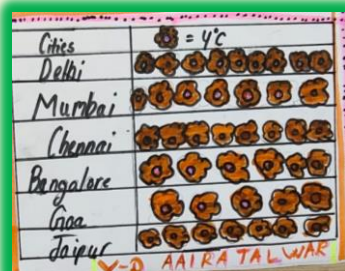 Cities = 4°C
Delhi
Mumbai
Chennai
Bangalore
Goa
Jaipur
V-D AAIRA TALWAR